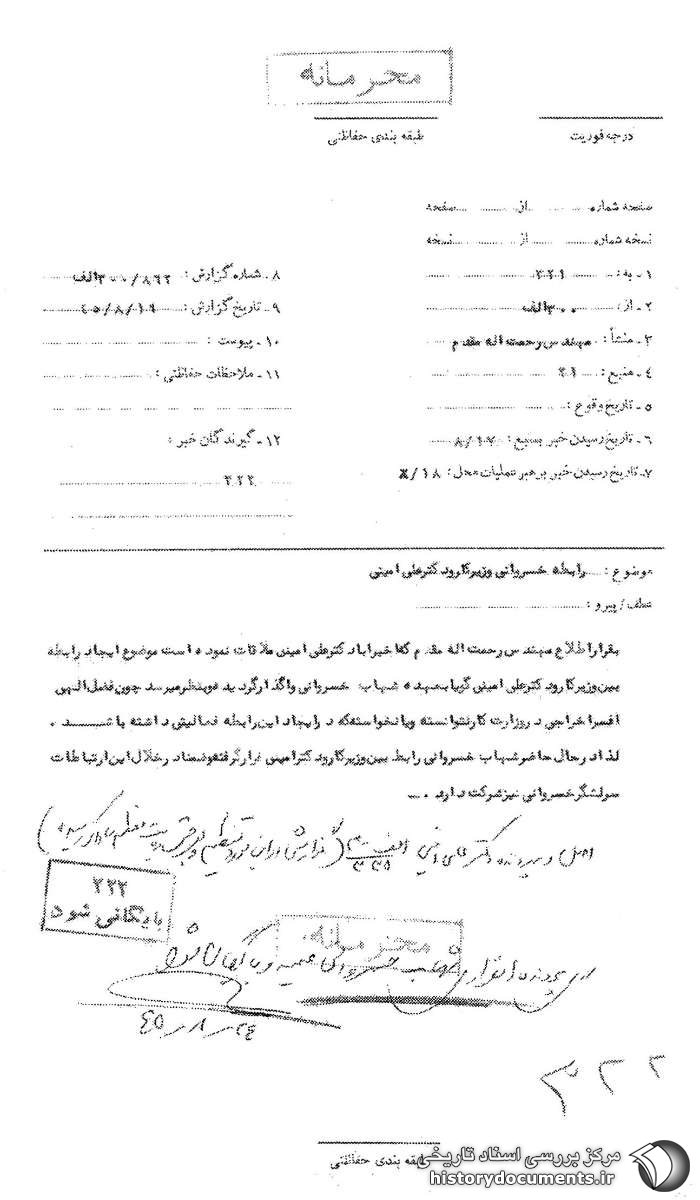 محرمانه
درجه فوریت
طبقه بندی حفاظتی
صفحه شماره از صفحه
نسخه شماره از نسخه
۱ـ به : ۳۲۱
۲ـ از : ۳۰۰الف
۳ـ منشأ : مهندس رحمت اله مقدم
۴ـ منبع : ۲۱
۵ـ تاریخ وقوع :
۶ـ تاریخ رسیدن خبر بمنبع : ۸/۱۷
۷ـ تاریخ رسیدن خبر برهبر عملیات محل : ۸/۱۸
۸ـ شماره گزارش : ۳۰۰/۸۶۲الف
۹ـ تاریخ گزارش : ۴۵/۸/۱۹
۱۰ـ پیوست :
۱۱ـ ملاحظات حفاظتی :
۱۲ـ گیرندگان خبر :
۳۲۲
موضوع : رابطه خسروانی وزیرکارود کترعلی امینی
عطف / پیرو :
بقراراطلاع مهندس رحمت اله مقدم که اخیرا باد کترعلی امینی ملاقات نموده است موضوع ایجاد رابطه
بین وزیرکارود کترعلی امینی گویا بعهده شهاب خسروانی واگذار گردیده وبنظرمیرسد چون فضل الهی
افسر اخراجی د روزارت کارنتوانسته ویانخواسته که د رایجاد این رابطه فعالیتی داشته باشد .
لذاد رحال حاضر شهاب خسروانی رابط بین وزیرکارود کترامینی قرارگرفته وضمناد رخلال این ارتباطات
سرلشگر خسروانی نیزشرکت دارد .
اصل در پرونده دکتر علی امینی الف
۳۲۲
بایگانی شود
محرمانه
در پرونده انفرادی شهاب خسروانی ضمیمه و بایگانی شود
۴۵ر۸ر۲۴
۳۲۲
طبقه بندی حفاظتی
مرکز بررسی اسناد تاریخی
historydocuments.ir